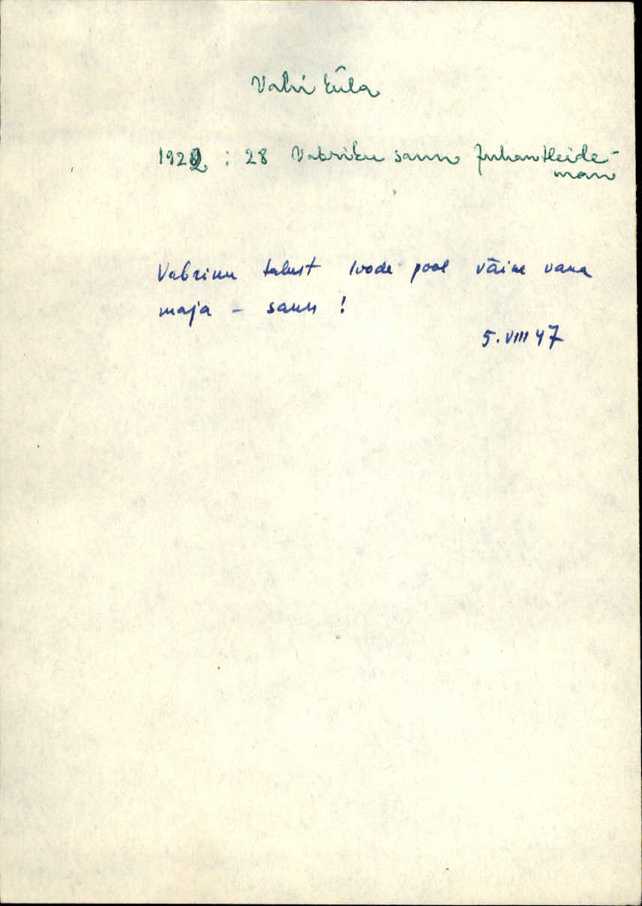 Vahi küla
1922 : 28 Vabriku saun Juhan Heide-
man
Vabriku talust loode pool väike vana
maja - saun !
5. VIII 47